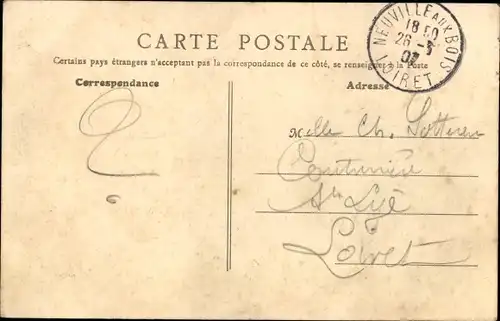 CARTE POSTALE
Certains pays étrangers n'acceptant pas la correspondance de ce côté, se renseigner à la Poste
Correspondance
Adresse
NEUVILLE AUX BOIS
18 50
26 -
07
LOIRET
?
Melle Ch.
Couturière
St Lyé
Loiret